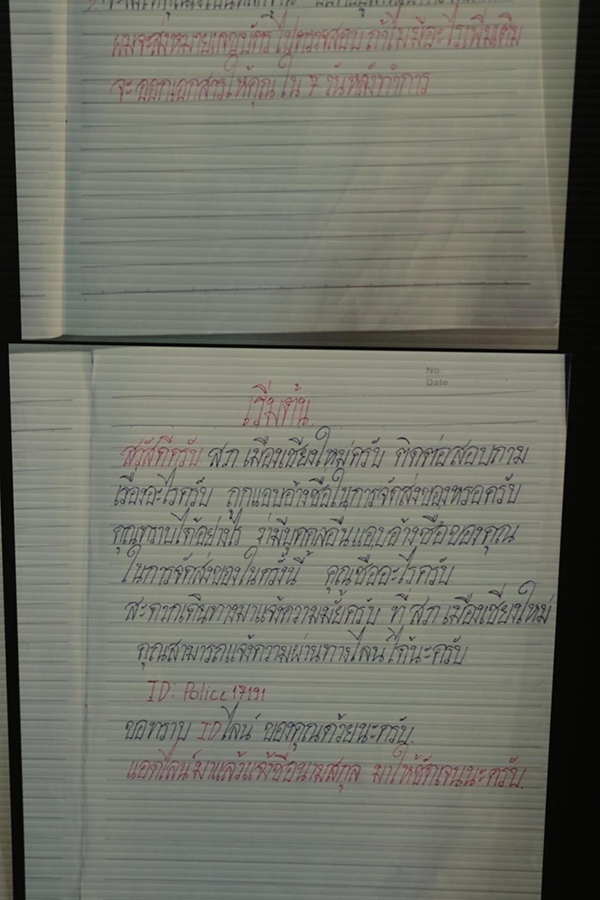 ผมจะส่งหมายเลขบัตร ไปตรวจสอบ ถ้าไม่มีอะไรเพิ่มเติม
จะออกเอกสารให้คุณ ใน 7 วันหลังทำการ
No.
Date
เริ่มต้น
สวัสดีครับ สภ เมืองเชียงใหม่ครับ ติดต่อสอบถาม
เรื่องอะไรครับ ถูกแอบอ้างชื่อในการจัดส่งของหรอครับ
คุณทราบได้อย่างไร ว่ามีบุคคลอื่นแอบอ้างชื่อของคุณ
ในการจัดส่งของในครั้งนี้ คุณชื่ออะไรครับ
สะดวกเดินทางมาแจ้งความมั้ยครับ ที่ สภ เมืองเชียงใหม่
คุณสามารถแจ้งความผ่านทางไลน์ ได้นะครับ
ID: Police17191
ขอทราบ ID ไลน์ ของคุณด้วยนะครับ
แอดไลน์มาแล้วแจ้งชื่อนามสกุล มาให้ชัดเจนนะครับ